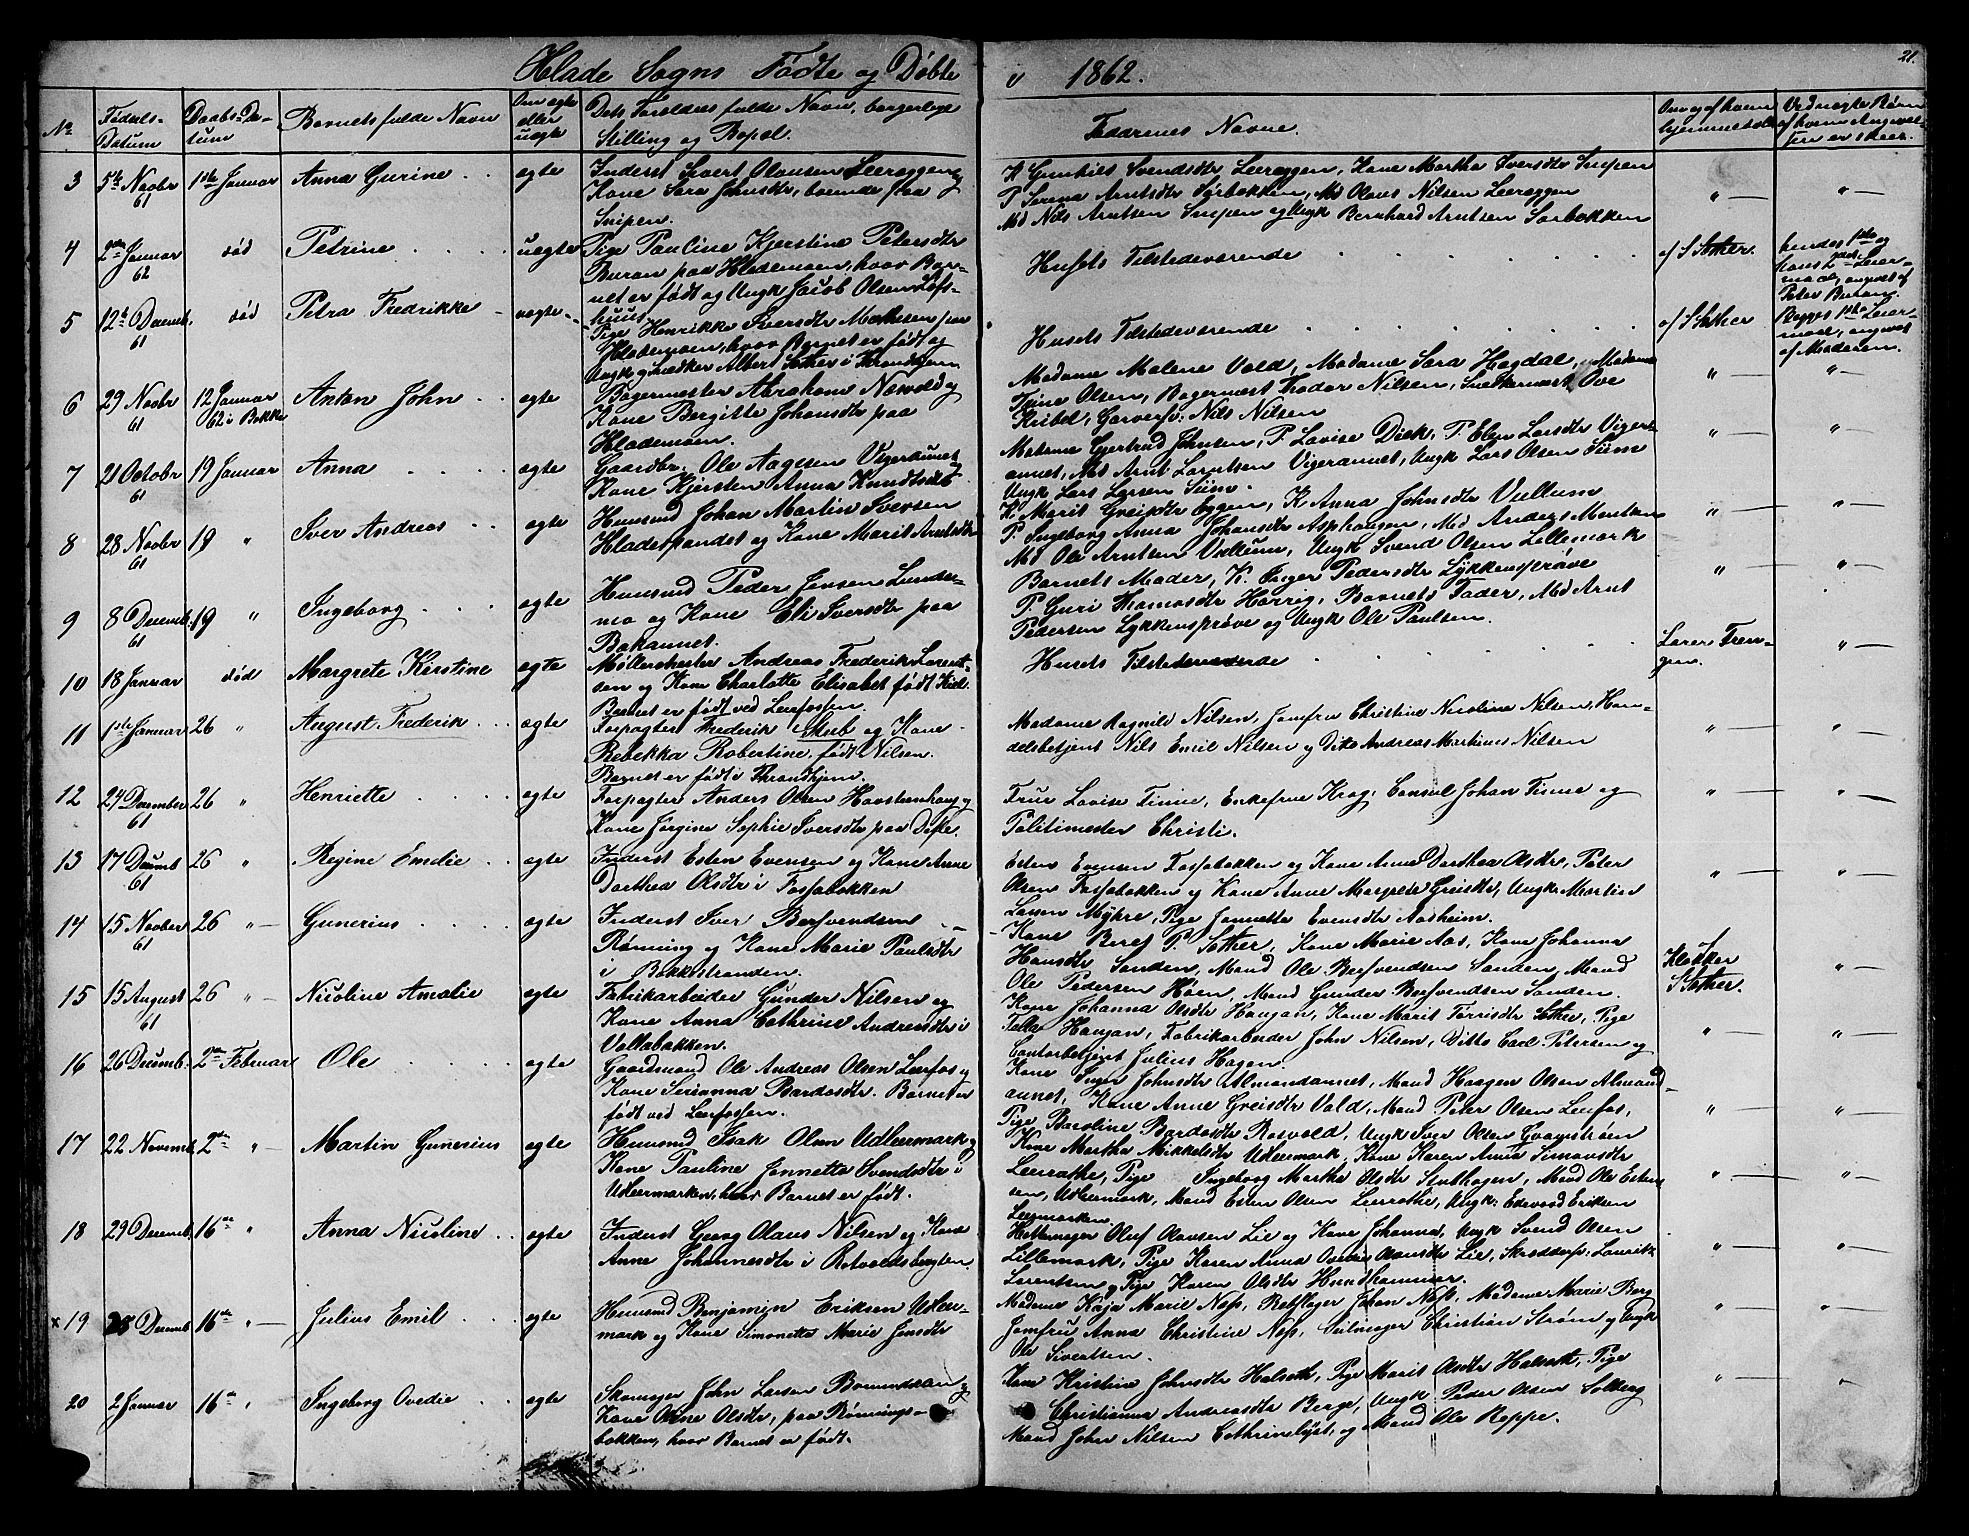 Hlade Sogns Fødte og Døbte i 1862.
21.
No
Fødsels-Datum
Daabs-Datum
Barnets fulde Navn
Om ægte eller uegte
Dets Forældres fulde Navn, borgerlige
Stilling og Bopæl.
Faddernes Navne.
Om og af hvem hjemmedøbt
Ved uegte Børn
af hvem Angivel-
sen er skeet.
3 5te Novbr 61 1ste Januar Anna Gurine ægte
Inderst Sivert Olausen Leereggen og
Kone Sara Johnsdr, boende paa
Snipen.
K. Gunhild Svendsdtr Leereggen, Kone Martha Iversdtr Snipen
P. Serena Arntsdtr Sørbakken, Md Olaus Nilsen Leereggen
Md Nils Arntsen Snipen og Ungk Bernhard Arntsen Sørbakken
4 2den Januar 62 død Petrine uegte
Pige Pauline Kjerstine Petersdtr
Buran paa Hlademoen, hvor Bar-
net er født og Ungk Jacob Olsen Lofs-
huus
Husets Tilstedeværende
af S Sæther.
hendes 1ste og
hans 2den Leier-
maal, angivet af
Peter Buran.
5 12te Decemb. 61 død Petra Fredrikke uegte
Pige Henrikke Iversdtr Mathesen paa
Hlademoen, hvor Barnet er født og
Ungk Snedker Albert Sæther i Throndhjem
Husets Tilstedeværende
af S Sæther
Begges 1ste Leier-
maal, angivet
af Moderen.
6 29 Novbr 61 12 Januar 62 i Bakke Anton John ægte
Bagermester Abraham Nowold og
Kone Birgitte Johansdtr paa
Hlademoen.
Madame Malene Vold, Madame Sara Hogdal, Madame
Trine Olsen, Bagermest Thodor Nilsen, Snedkermest Ove
Kribel, Garversv: Nils Nilsen
7 21 Octobr 61 19 Januar Anna ægte
Gaardbr. Ole Aagesen Vigeraunet og
Kone Kjersten Anna Knudtsdtr
Madame Gjertrud Johnsen, P. Lovise Dick, P. Elen Larsdtr Viger-
aunet, Md Arnt Larntsen Vigeraunet, Ungk Lars Olsen Siim
Ungk Lars Larsen Siim.
8 28 Novbr 61 19 " Iver Andreas ægte
Huusmd Johan Martin Iversen
Hladesandet og Kone Marit Arntsdtr
K. Marit Greisdtr Eggen, K Anna Johnsdtr Vullum
P. Ingeborg Anna Johansdtr Asphaugen, Md Anders Montken
Md Ole Arntsen Vullum, Ungk Svend Olsen Lillemark
9 8 Decemb. 61 19 " Ingeborg ægte
Huusmd Peder Jensen Lunde-
mo og Kone Eli Iversdtr paa
Bakaunet.
Barnets Moder, K. Inger Pedersdtr Lykkensprøve
P. Guri Thomasdtr Harrig, Barnets Fader, Md Arnt
Pedersen Lykkensprøve og Ungk Ole Paulsen.
10 18 Januar død Margrete Kirstine ægte
Møllermester Andreas Frederik Lorent-
sen og Kone Charlotte Elisabet født Kiel.
Barnet er født ved Leerfossen.
Husets Tilstedeværende
Lærer Tren-
gen.
11 1ste Januar 26 " August Frederik ægte
Forpagter Frederik Stub og Kone
Rebekka Robertine, født Nilsen.
Barnet er født i Throndhjem.
Madame Ragnild Nilsen, Jomfru Christine Nicoline Nilsen, Han-
delsbetjent Nils Emil Nilsen og Ditto Andreas Martinus Nilsen
12 24 December 61 26 " Henriette ægte
Forpagter Anders Olsen Havsteenhaug og
Kone Jørgine Sophie Iversdtr paa Døfte.
Frue Lovise Finne, Enkefrue Krog, Consul Johan Finne og
Politimester Christie.
13 17 Decemb 61 26 " Regine Emelie ægte
Inderst Esten Evensen og Kone Anne
Dorthea Olsdtr i Fossebakken
Esten Evensen Fossebakken og Kone Anne Dorthea Olsdtr, Peter
Olsen Fossebakken og Kone Anne Margrete Greisdtr, Ungk Martin
Larsen Myhre, Pige Jannetta Evensdtr Aasheim.
14 15 Novber 61 26 " Gunerius ægte
Inderst Iver Bersvendsen
Rønning og Kone Marie Paulsdtr
i Bakkestranden.
Kone Beret P. Sæther, Kone Marie Aas, Kone Johanna
Hansdtr Sanden, Mand Ole Bersvendsen Sanden, Mand
Ole Pedersen Høen, Mand Gunder Bersvendsen Sanden.
Klokker
S Sæther.
15 15 August 61 26 " Nicoline Amalie ægte
Fabrikarbeider Gunder Nilsen og
Kone Anna Cathrine Andreasdtr i
Vollabakken.
Kone Johanna Olsdtr Haugan, Kone Marit Torrisdtr Sæther, Pige
Talla Haugan, Fabrikarbeider John Nilsen, Ditto Carl Petersen og
Contorbetjent Julius Hagen.
16 26 Decemb. 2den Februar Ole ægte
Gaardmand Ole Andreas Olsen Leerfos og
Kone Serianna Bardosdtr. Barnet er
født ved Leerfossen.
Kone Inger Johnsdtr Almandaunet, Mand Haagen Olsen Almand-
aunet, Kone Anne Greisdtr Vold, Mand Peter Olsen Leerfos,
Pige Baroline Bardosdtr Rosvold, Ungk Iver Olsen Gvamstrøm
17 22 Novemb. 2den " Martin Gunerius ægte
Huusmd Isak Olsen Udleermark og
Kone Pauline Jonnetta Svendsdtr i
Udleermarken, hvor Barnet er født.
Kone Martha Mikkelsdtr Udleermark, Kone Karen Anna Simonsdtr
Leerrathe, Pige Ingeborg Martha Olsdtr Stubhagen, Mand Ole Esten-
sen, Udleermark, Mand Esten Olsen Leerrathe, Ungk: Edevard Eriksen
Leermarken
18 29 Decemb. 16de " Anna Nicoline ægte
Inderst Georg Olaus Nilsen og Kone
Anne Johannesdtr i Rotvoldsbergten.
Hattemager Oluf Olausen Lie og Kone Johanna, Ungk Svend Olsen
Lillemark, Pige Karen Anna Olausdtr Lie, Skræddersv. Laurits
Larentsen og Pige Karen Olsdtr Hundhammer.
x 19 25 Decemb 16de " Julius Emil ægte
Huusmd Benjamin Eriksen Udleer-
mark og Kone Simonette Marie Jensdtr
Madame Kaja Marie Næss, Rebslager Johan Næss, Madame Marie Berg
Jomfru Anna Christine Næss, Seilmager Christian Strøm og Ungk
Ole Sivertsen.
20 2 Januar 16de " Ingeborg Ovedie ægte
Skomager John Larsen Bomundsaan og
Kone Anne Olsdtr, paa Rønnings-
bakken, hvor Barnet er født.
Kone Kristine Johnsdtr Halseth, Pige Marit Olsdtr Halseth, Pige
Christianna Andreasdtr Berge, Ungk Peder Olsen Solberg
Mand John Nilsen Cathrinelyst, og Mand Ole Reppe.